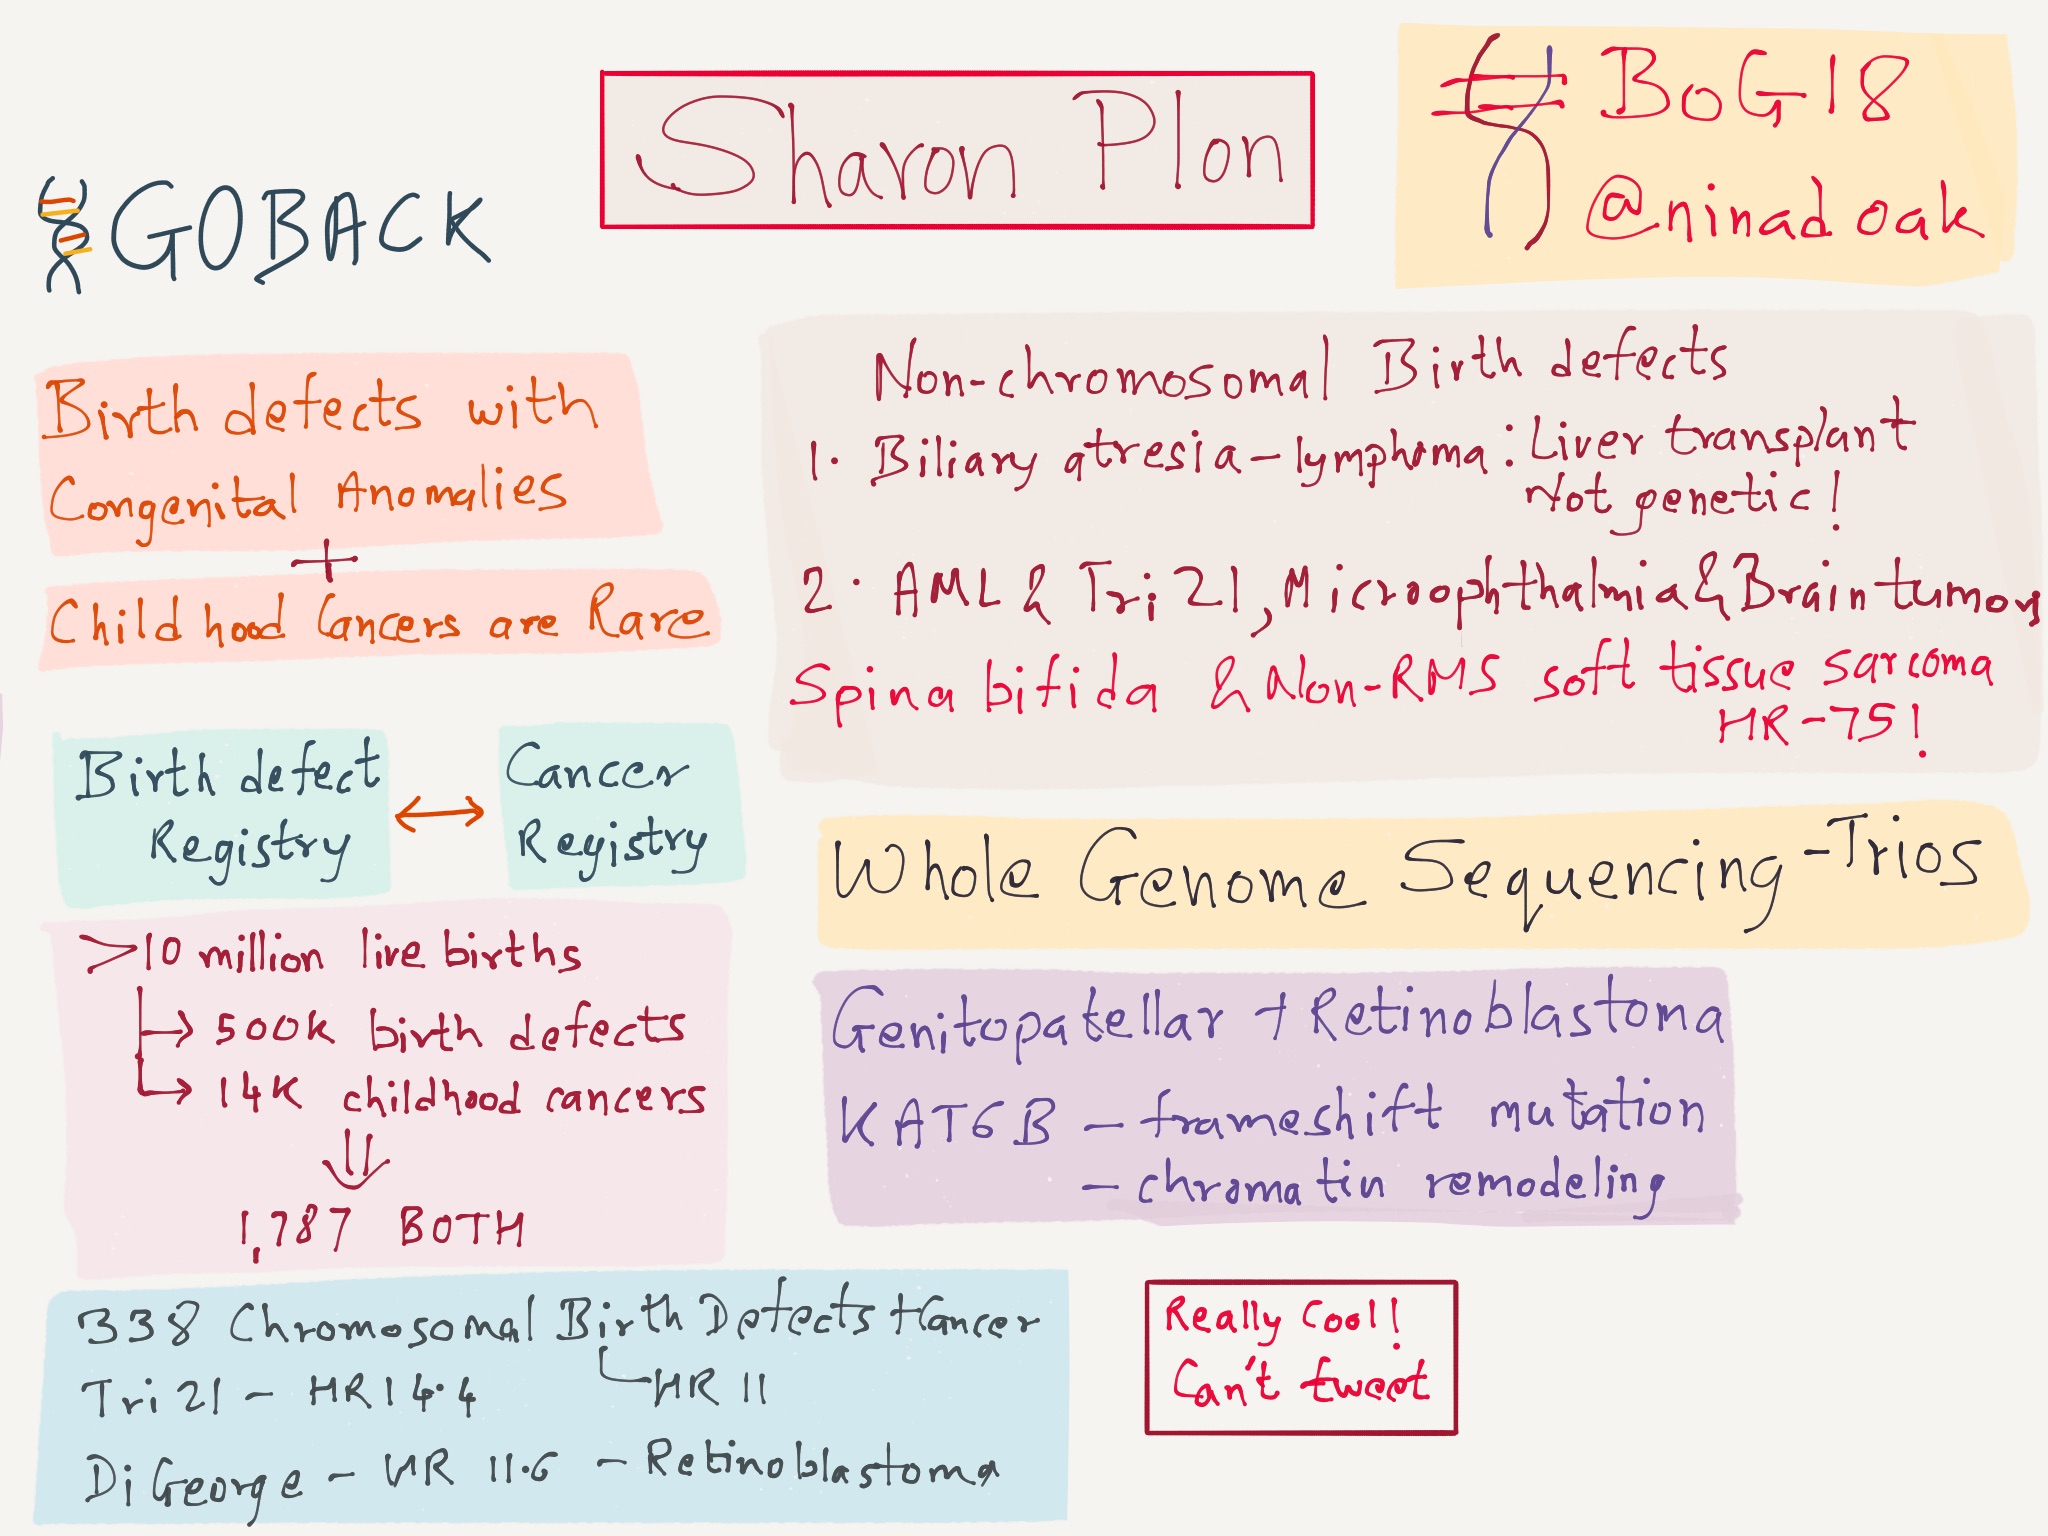 Sharon Plon
#BoG18
@ninadoak
GOBACK
Birth defects with
Congenital Anomalies
+
Childhood Cancers are Rare
Birth defect
Registry
↔
Cancer
Registry
>10 million live births
→ 500K birth defects
→ 14K childhood cancers
⇓
1,787 BOTH
338 Chromosomal Birth Defects + Cancer
HR 11
Tri 21 - HR 14.4
DiGeorge - HR 11.6 - Retinoblastoma
Non-chromosomal Birth defects
1. Biliary atresia - lymphoma: Liver transplant
Not genetic!
2. AML & Tri 21, Microophthalmia & Brain tumors
Spina bifida & Non-RMS soft tissue sarcoma
HR-75!
Whole Genome Sequencing - Trios
Genitopatellar + Retinoblastoma
KAT6B - frameshift mutation
- chromatin remodeling
Really Cool!
Can't tweet